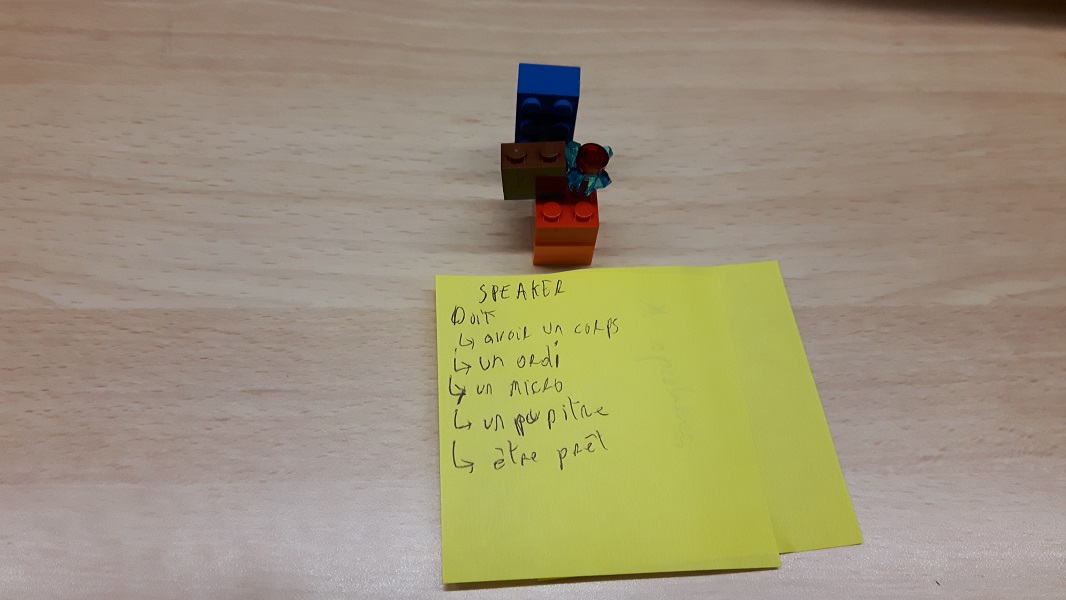 SPEAKER
Doit
↳ avoir un corps
↳ un ordi
↳ un micro
↳ un pupitre
↳ être prêt